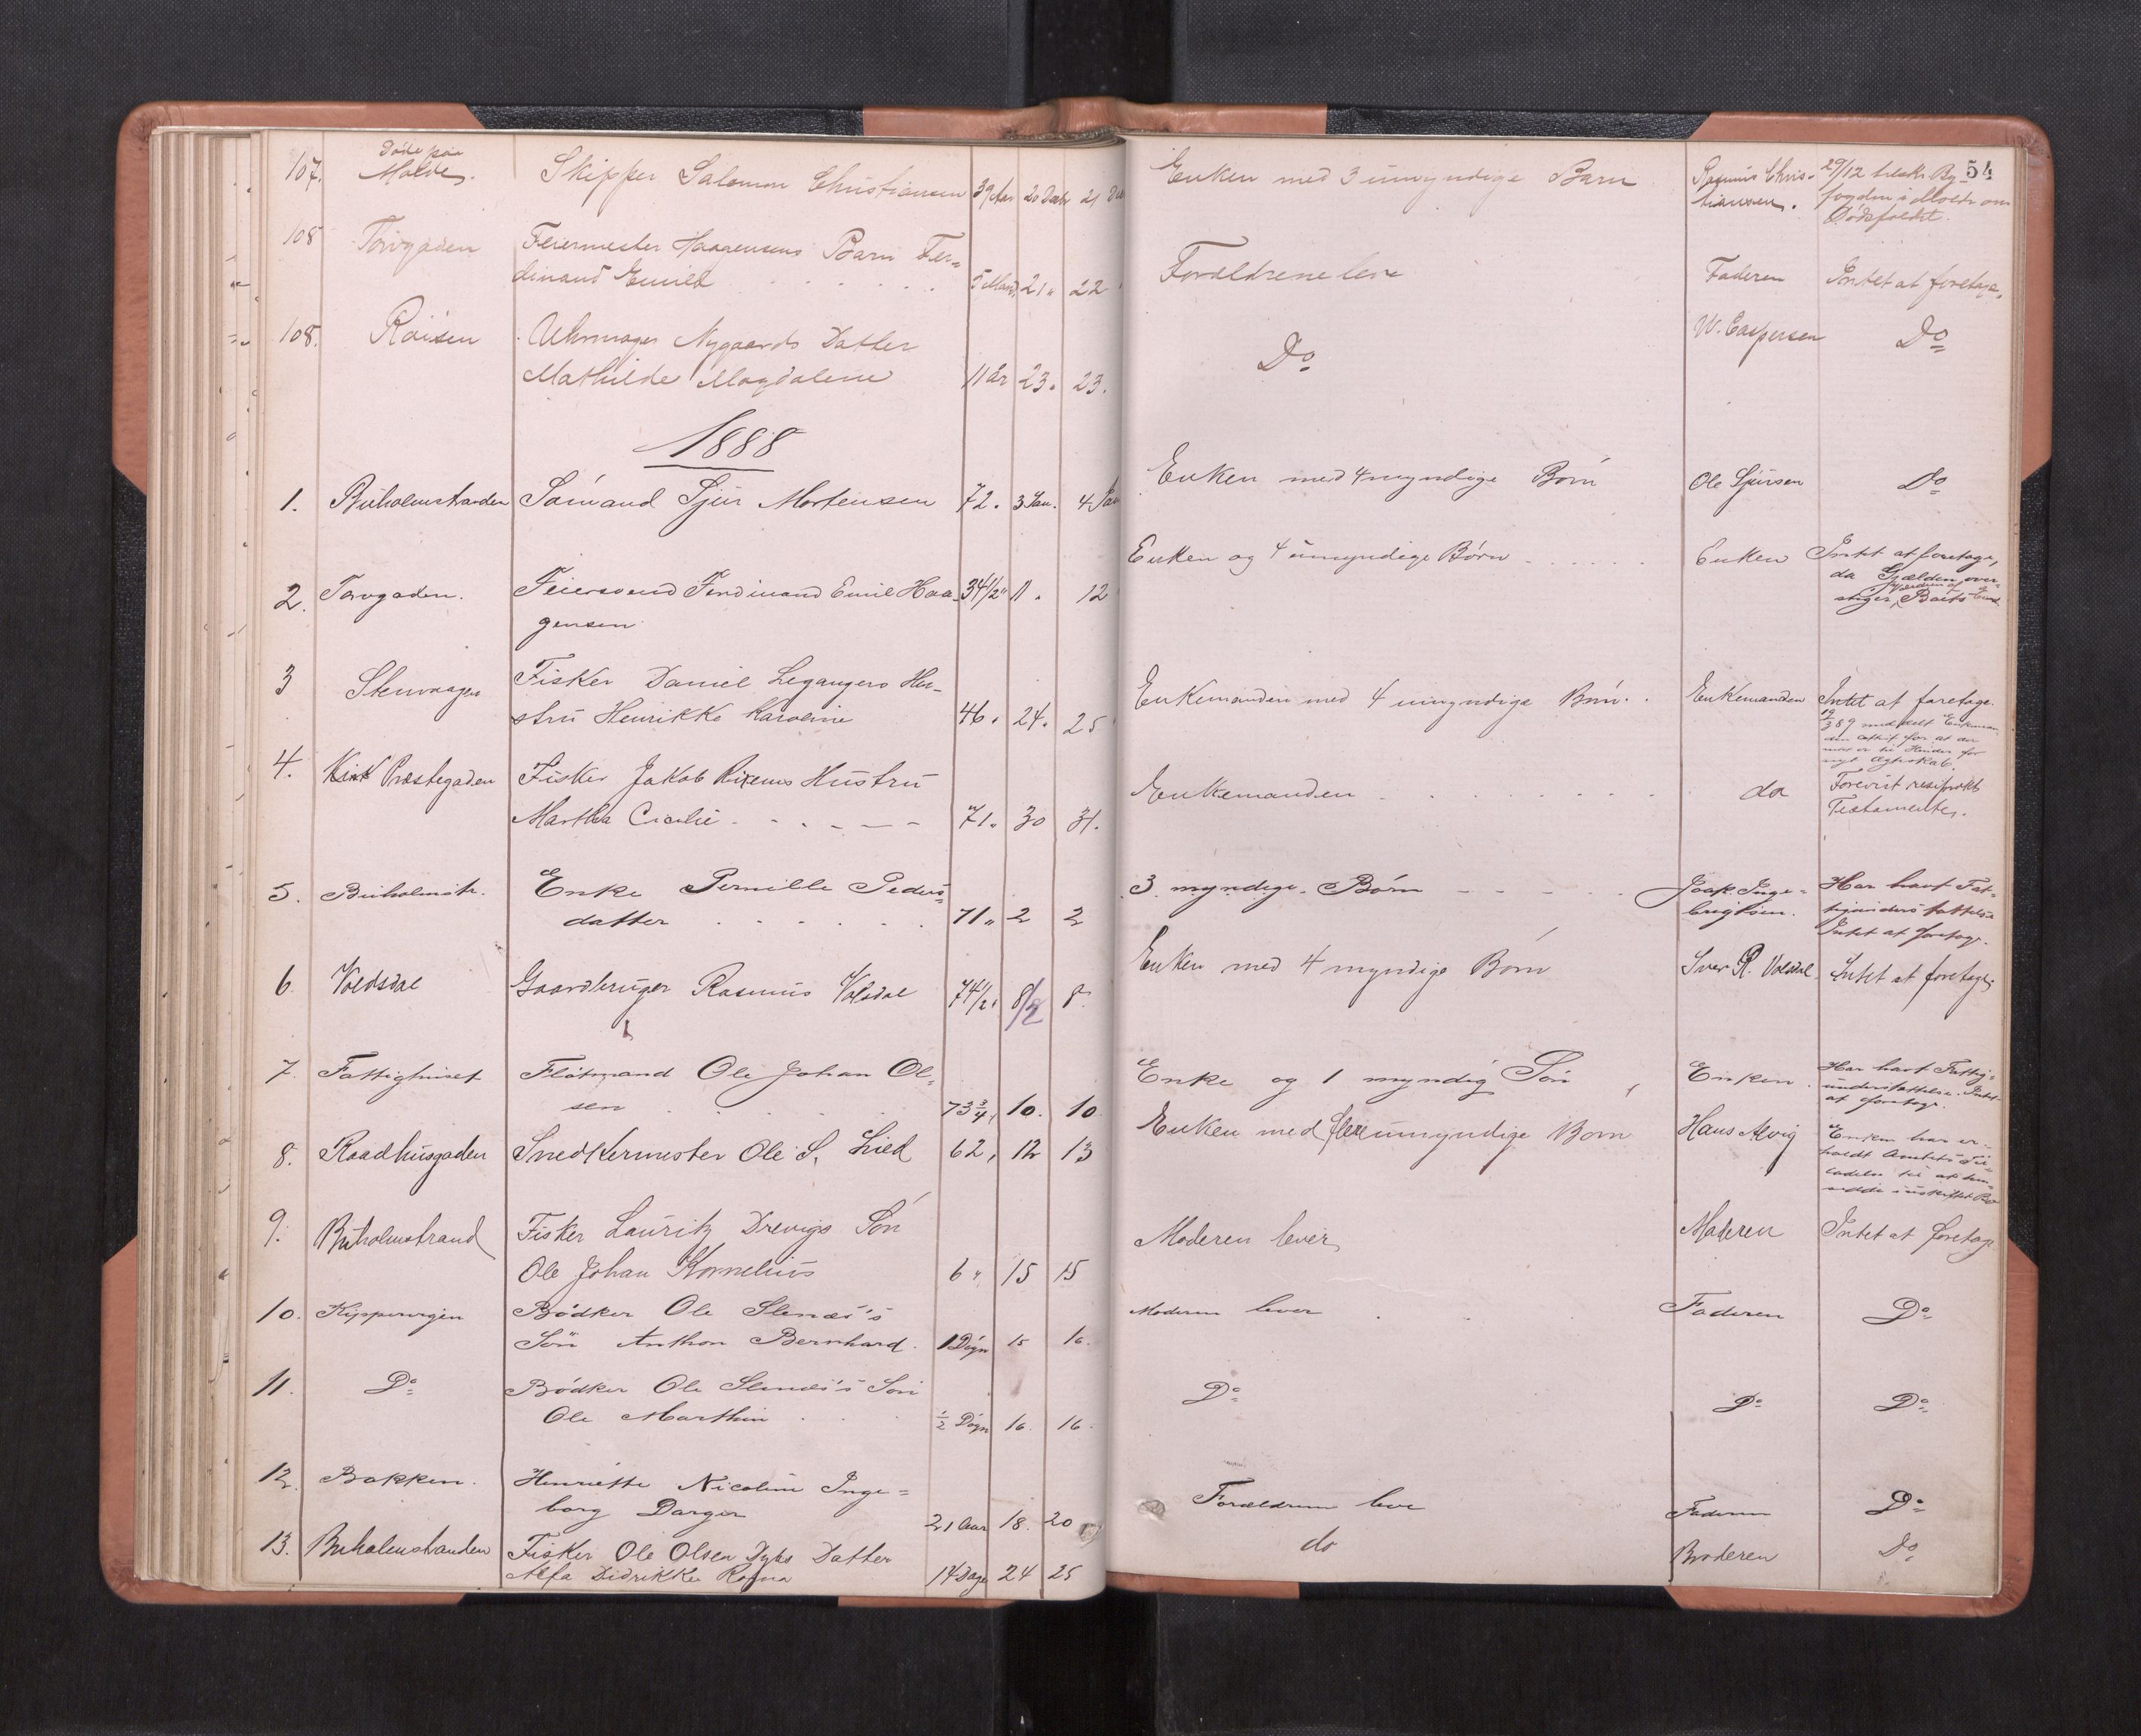 54
107. Døde paa Molde. Skipper Salomon Christiansen 39 Aar 20 Decbr 21 Enken med 3 umyndige Børn Rasmus Chris-
tiansen. 29/12 By-
fogden i Molde om
Dødsfaldet.
108 Torvgaden Feiermester Haagensens Barn Fer-
dinand Emild 5 Maan. 21 " 22 Forældrene leve Faderen Intet at foretage.
108. Røisen Uhrmager Nygaards Datter
Mathilde Magdalene 11 År 23. 23. Do W. Caspersen Do
1888
1. Buholmstranden Sømand Sjur Mortensen 72. 3 Jan. 4 Jan Enken med 4 myndige Børn Ole Sjursen Do
2. Torvgaden. Feiersvend Ferdinand Emil Haa-
gensen 34 1/2 " 11. 12 Enken og 4 umyndige Børn Enken Intet at foretage,
da Gjælden over-
stiger Boets
3 Stenvaagen Fisker Daniel Legangers Hu-
stru Henrikke Karoline 46. 24. 25 Enkemanden med 4 umyndige Børn. Enkemanden Intet at foretage.
4. Præstegaden Fisker Jakob Rixens Hustru
Martha Cicilie 71. 30 31. Enkemanden do Forevist resiprokt
Testamente.
5. Buholmstr. Enke Pernille Peders-
datter 71 " 2 2 3 myndige Børn Joak. Inge-
brigtsen. Har havt Fat-
tigunderstøttelse
Intet at foretage.
6 Voldsdal Gaardbruger Rasmus Volsdal 74 1/2 8/2 8. Enken med 4 myndige Børn Iver R. Volsdal Intet at foretage.
7. Fattighuset Fløtmand Ole Johan Ol-
sen 73 3/4 10. 10 Enke og 1 myndig Søn Enken. Har havt Fattig-
understøttelse. Intet
at foretage.
8. Raadhusgaden Snedkermester Ole S. Lied 62, 12 13 Enken med flere umyndige Børn Hans Alvig Enken har er-
holdt Amtets Til-
ladelse til at hen-
sidde i uskiftet Bo
9. Buholmstrand Fisker Lauritz Drevigs Søn
Ole Johan Kornelius 6 " 15 15 Moderen lever Moderen Intet at foretage
10. Kippervigen Bødker Ole Slenæs's
Søn Anthon Bernhard. 1 Døgn 15 16. Moderen lever Faderen Do
11. Do Bødker Ole Slenæs's Søn
Ole Marthin 1/2 Døgn 16. 16. Do Do Do
12. Bakken. Henriette Nicoline Inge-
borg Darger 21 Aar 18. 20 Forældrene leve Faderen Do
13. Buholmstranden Fisker Ole Olsen Dybs Datter
Alfa Didrikke Ragna 14 Dage 24 25 do Broderen Do